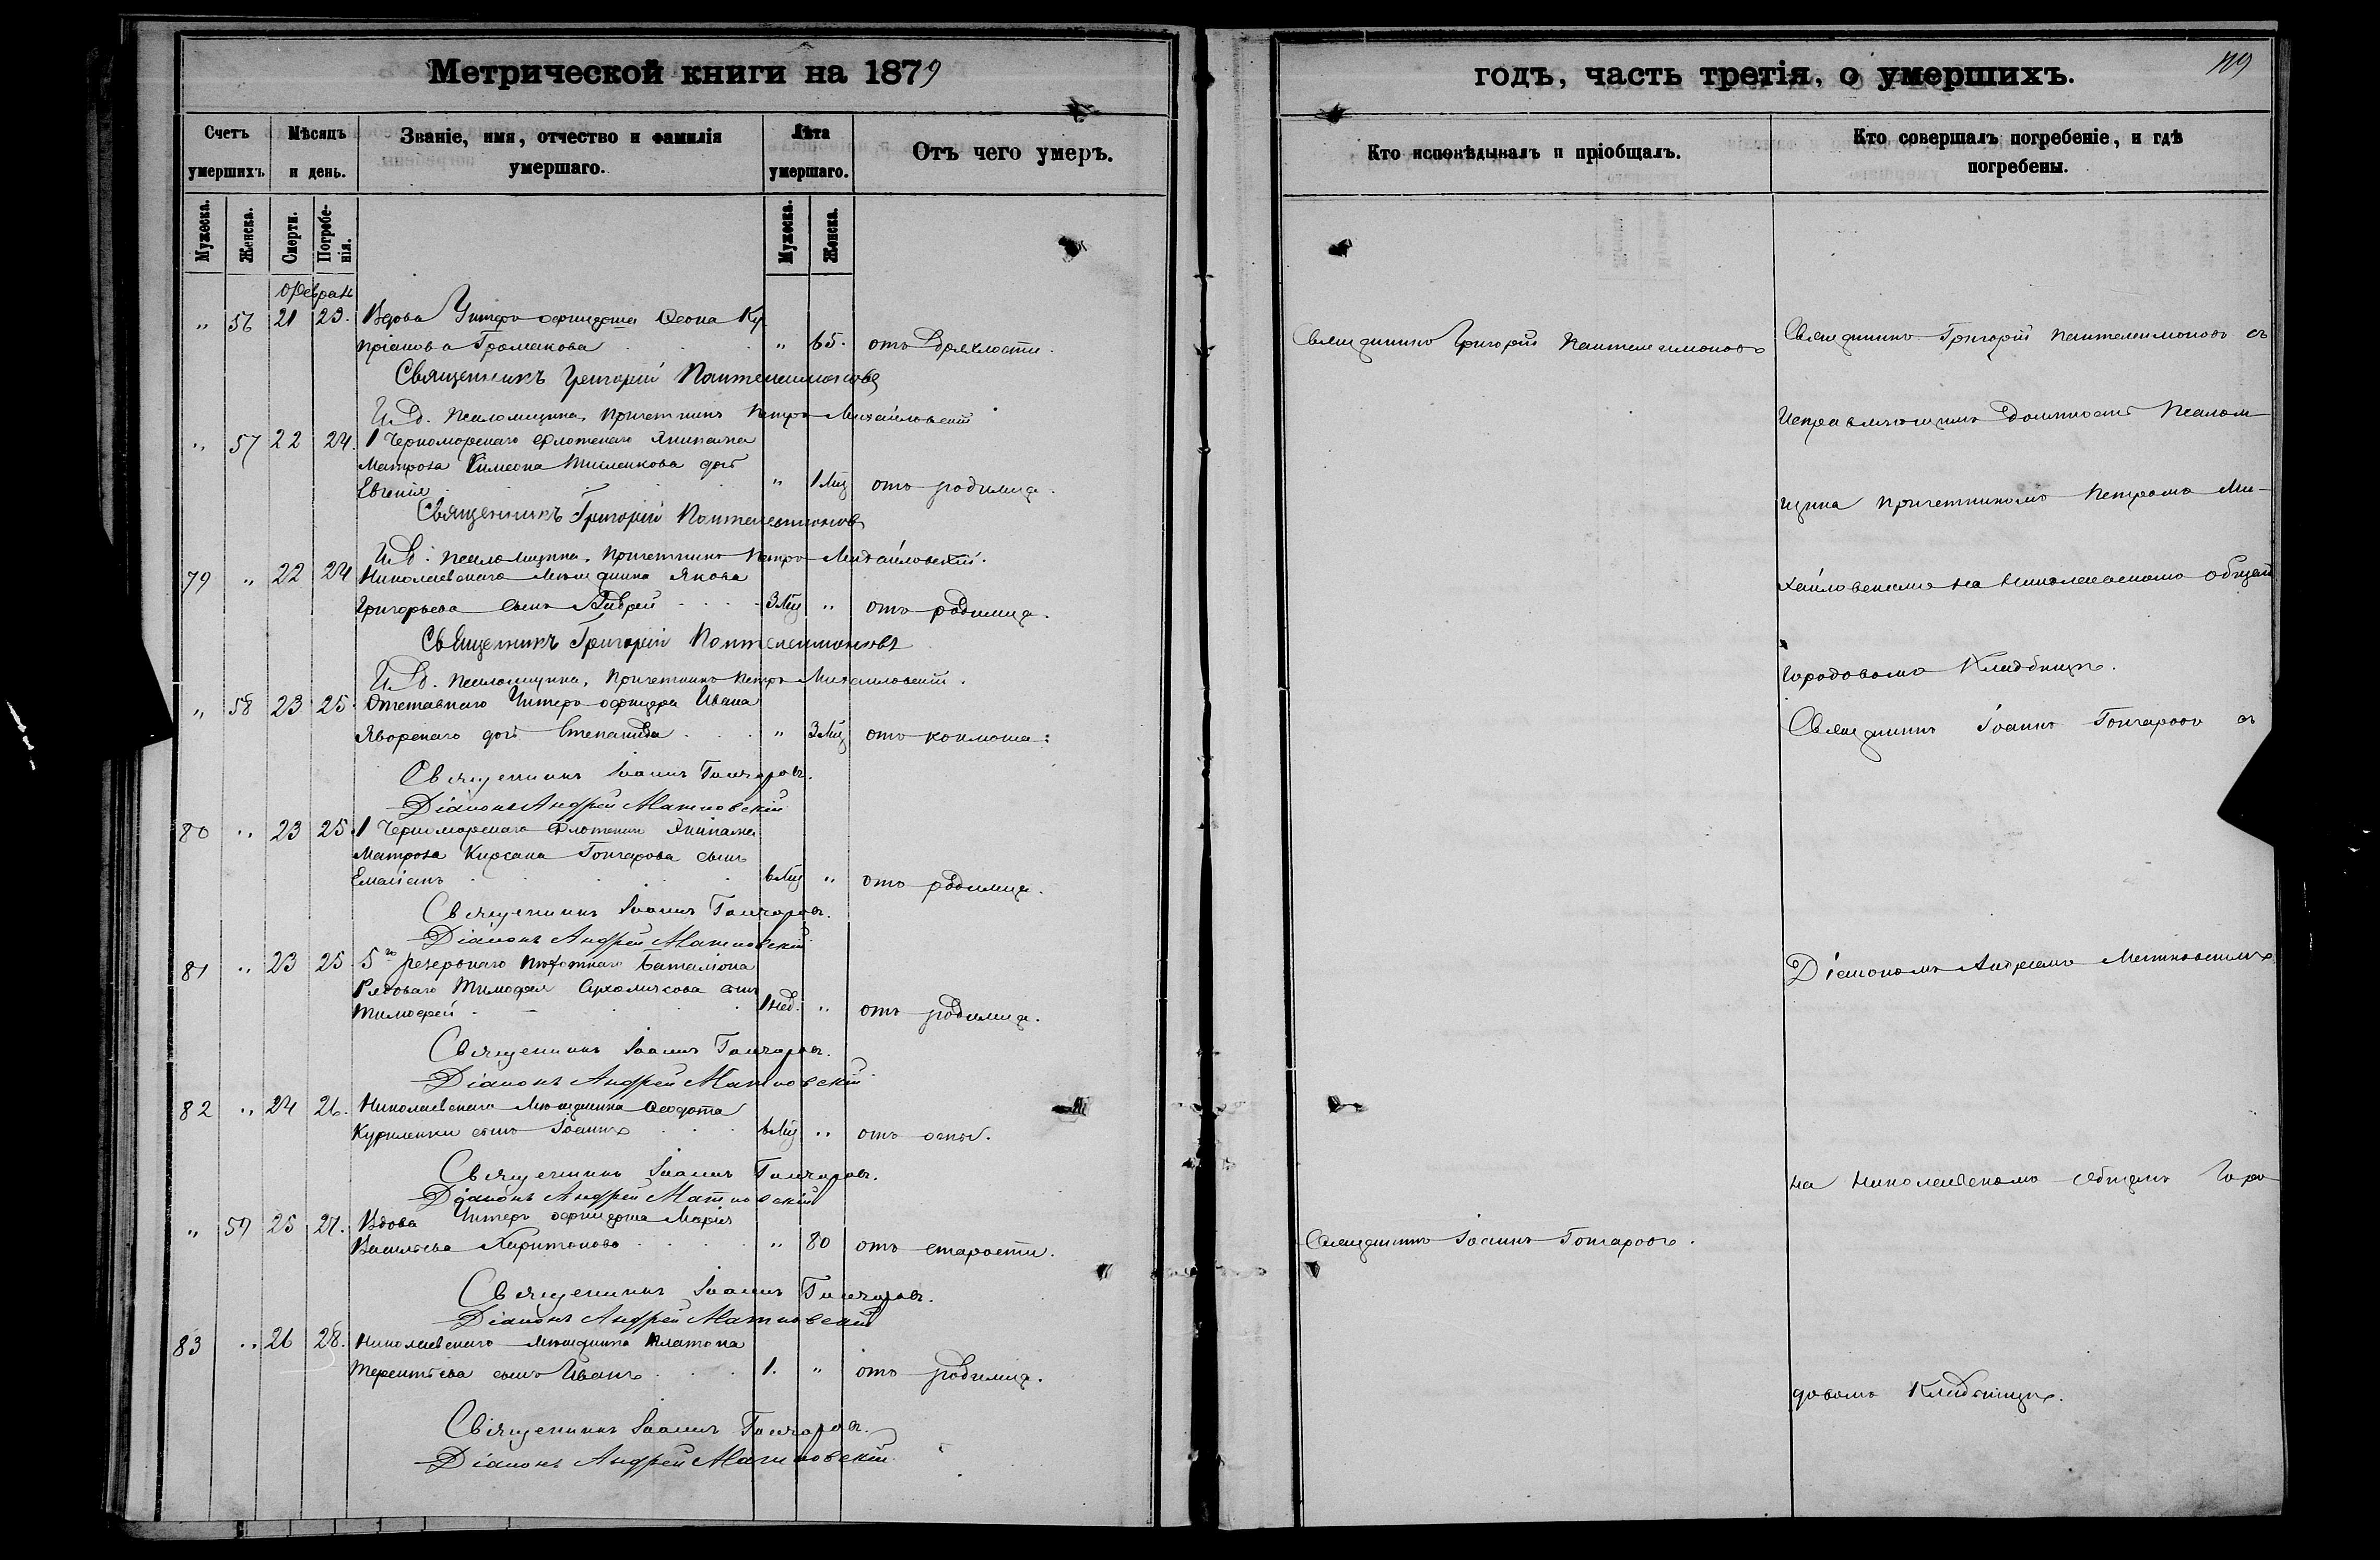 Метрической книги на 1879
годъ, часть третія, о умершихъ.
119
Счетъ умершихъ
Мѣсяцъ и день.
Званіе, имя, отчество и фамилія умершаго.
Лѣта умершаго.
Отъ чего умеръ.
Кто исповѣдывалъ и пріобщалъ.
Кто совершалъ погребеніе, и гдѣ погребены.
Мужеска.
Женска.
Смерти.
Погребенія.
Мужеска.
Женска.
Феврал
" 56 21 23. Вдова Унтеръ офицерша Ку
пріанова Громакова " 65. отъ дряхлости.
Священникъ Григорій Пантелеимоновъ
Священникъ Григорій Пантелеимоновъ съ
Священникъ Григорій Пантелеимоновъ
И. д. псаломщика, причетникъ Петръ Михайловскій
Исправляющимъ должность Псалом-
" 57 22 24. 1 Черноморскаго флотскаго Экипажа
Матроза Симеона дочь
Евгенія " 1 Мц отъ родимца.
Священникъ Григорій Пантелеимоновъ
щика причетникомъ Петромъ Ми-
И. д. псаломщика, причетникъ Петръ Михайловскій.
79 " 22 24 Николаевскаго мѣщанина Якова
Григорьева сынъ Андрей 3 Мц " отъ родимца.
хайловскимъ на Николаевскомъ общем
Священникъ Григорій Пантелеимоновъ
И. д. псаломщика, причетникъ Петръ Михайловскій.
городовомъ Кладбищѣ.
" 58 23 25. Отставнаго Унтеръ-офицера Ивана
Яворскаго дочь Степанида " 3 Мц отъ коклюша:
Священникъ Іоаннъ Гончаровъ съ
Священникъ Іоаннъ Гончаровъ.
Діаконъ Андрей Матковскій
80 " 23 25. 1 Черноморскаго флотскаго Экипажа
Матроза Кирсана Гончарова сынъ
Емеліанъ 6 Мц " отъ родимца.
Священникъ Іоаннъ Гончаровъ.
Діаконъ Андрей Матковскій
81 " 23 25 5го резервнаго пѣхотнаго баталіона
Рядоваго Тимофея сынъ
Тимофей 1 нед. " отъ родимца.
Діакономъ Андреемъ Матковскимъ
Священникъ Іоаннъ Гончаровъ.
Діаконъ Андрей Матковскій
82 " 24 26. Николаевскаго мѣщанина Ѳеодота
Куриленки сынъ Іоаннъ 6 Мц " отъ оспы.
Священникъ Іоаннъ Гончаровъ.
Діаконъ Андрей Матковскій
на Николаевскомъ общемъ Горо
" 59 25 27. Вдова Унтеръ офицерша Марія
Васильева Харитонова " 80 отъ старости.
Священникъ Іоаннъ Гончаровъ.
Священникъ Іоаннъ Гончаровъ.
Діаконъ Андрей Матковскій
83 " 26 28. Николаевскаго мѣщанина Платона
Терентьева сынъ Иванъ 1. " отъ родимца.
довомъ Кладбищѣ.
Священникъ Іоаннъ Гончаровъ.
Діаконъ Андрей Матковскій